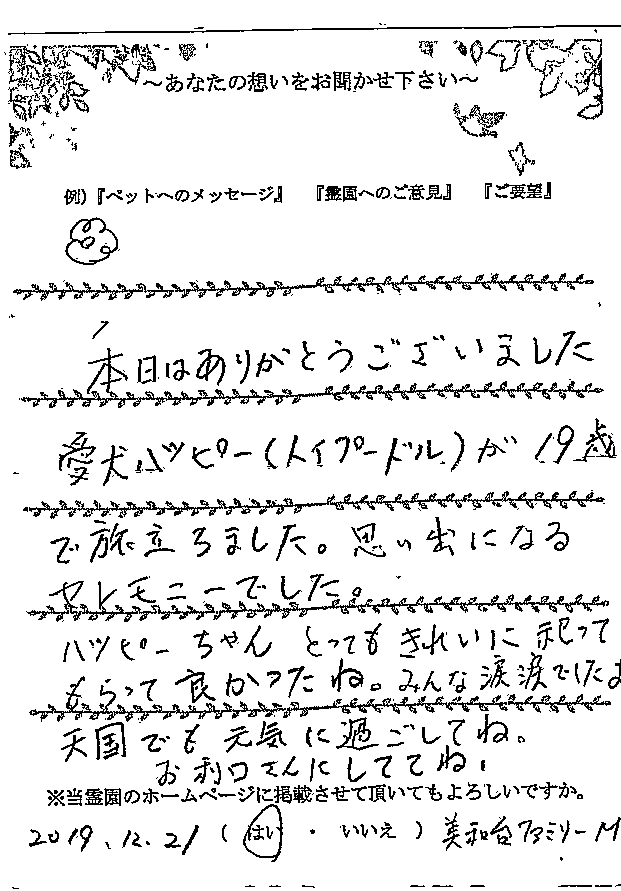 ～あなたの想いをお聞かせ下さい～
例）『ペットへのメッセージ』　『霊園へのご意見』　『ご要望』
本日はありがとうございました
愛犬ハッピー（トイプードル）が 19歳
で旅立ちました。思い出になる
セレモニーでした。
ハッピーちゃん とってもきれいに祀って
もらって良かったね。みんな涙涙でしたよ
天国でも元気に過ごしてね。
お利口さんにしててね。
※当霊園のホームページに掲載させて頂いてもよろしいですか。
2019.12.21（はい・いいえ）美和台ファミリーM